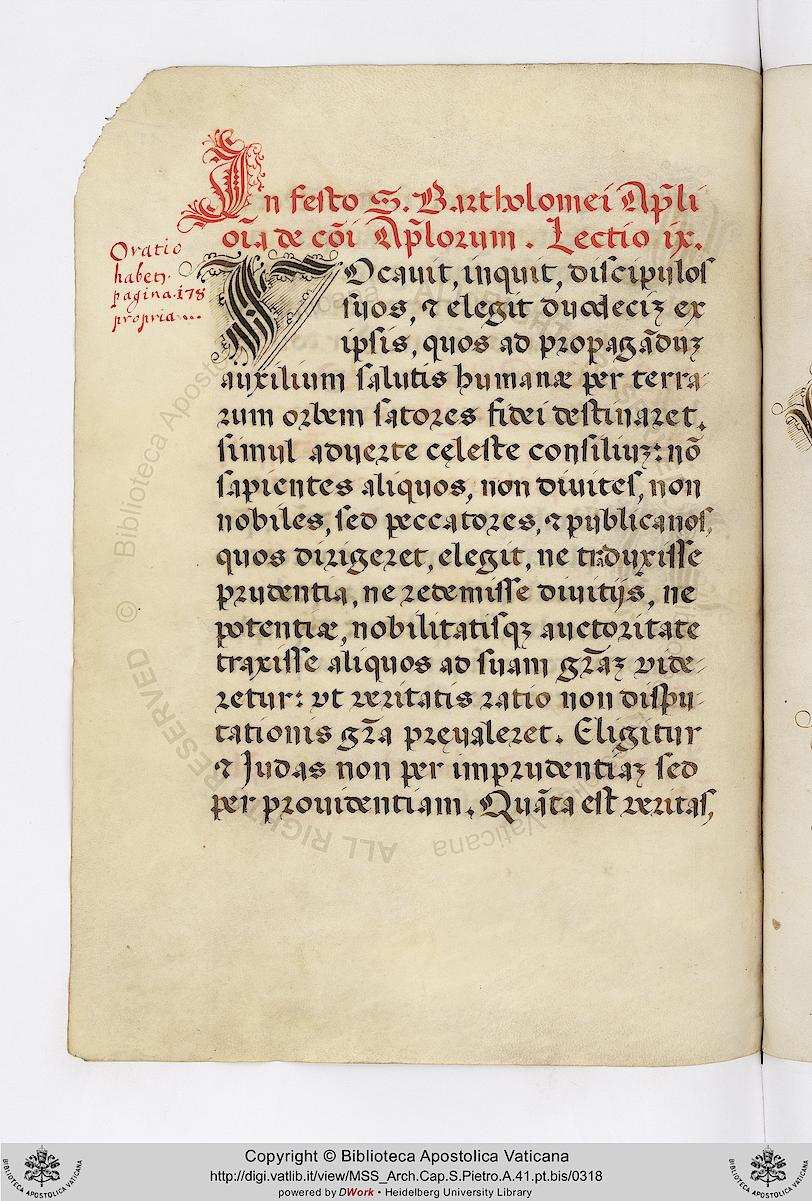 In festo S. Bartholomei Ap̃li
oı̃a de cõi Ap̃lorum. Lectio ix.
Oratio
habetʒ
pagina 178
propria...
VOcauit, inquit, discipulos
suos, ⁊ elegit duodeciʒ ex
ipsis, quos ad propagãduʒ
auxilium salutis humanæ per terra-
rum orbem satores fidei destinaret.
simul aduerte cęleste consiliuʒ: nõ
sapientes aliquos, non diuites, non
nobiles, sed peccatores, ⁊ publicanos,
quos dirigeret, elegit, ne traduxisse
prudentia, ne redemisse diuitijs, ne
potentiæ, nobilitatisqʒ auctoritate
traxisse aliquos ad suam gr̃aʒ vide-
retur: vt veritatis ratio non dispu-
tationis gr̃a preualeret. Eligitur
⁊ Judas non per imprudentiaʒ sed
per prouidentiam. Quãta est veritas,
© Biblioteca Apostolica Vaticana
ALL RIGHTS RESERVED
Copyright © Biblioteca Apostolica Vaticana
http://digi.vatlib.it/view/MSS_Arch.Cap.S.Pietro.A.41.pt.bis/0318
powered by DWork • Heidelberg University Library
BIBLIOTECA APOSTOLICA VATICANA
BIBLIOTECA APOSTOLICA VATICANA